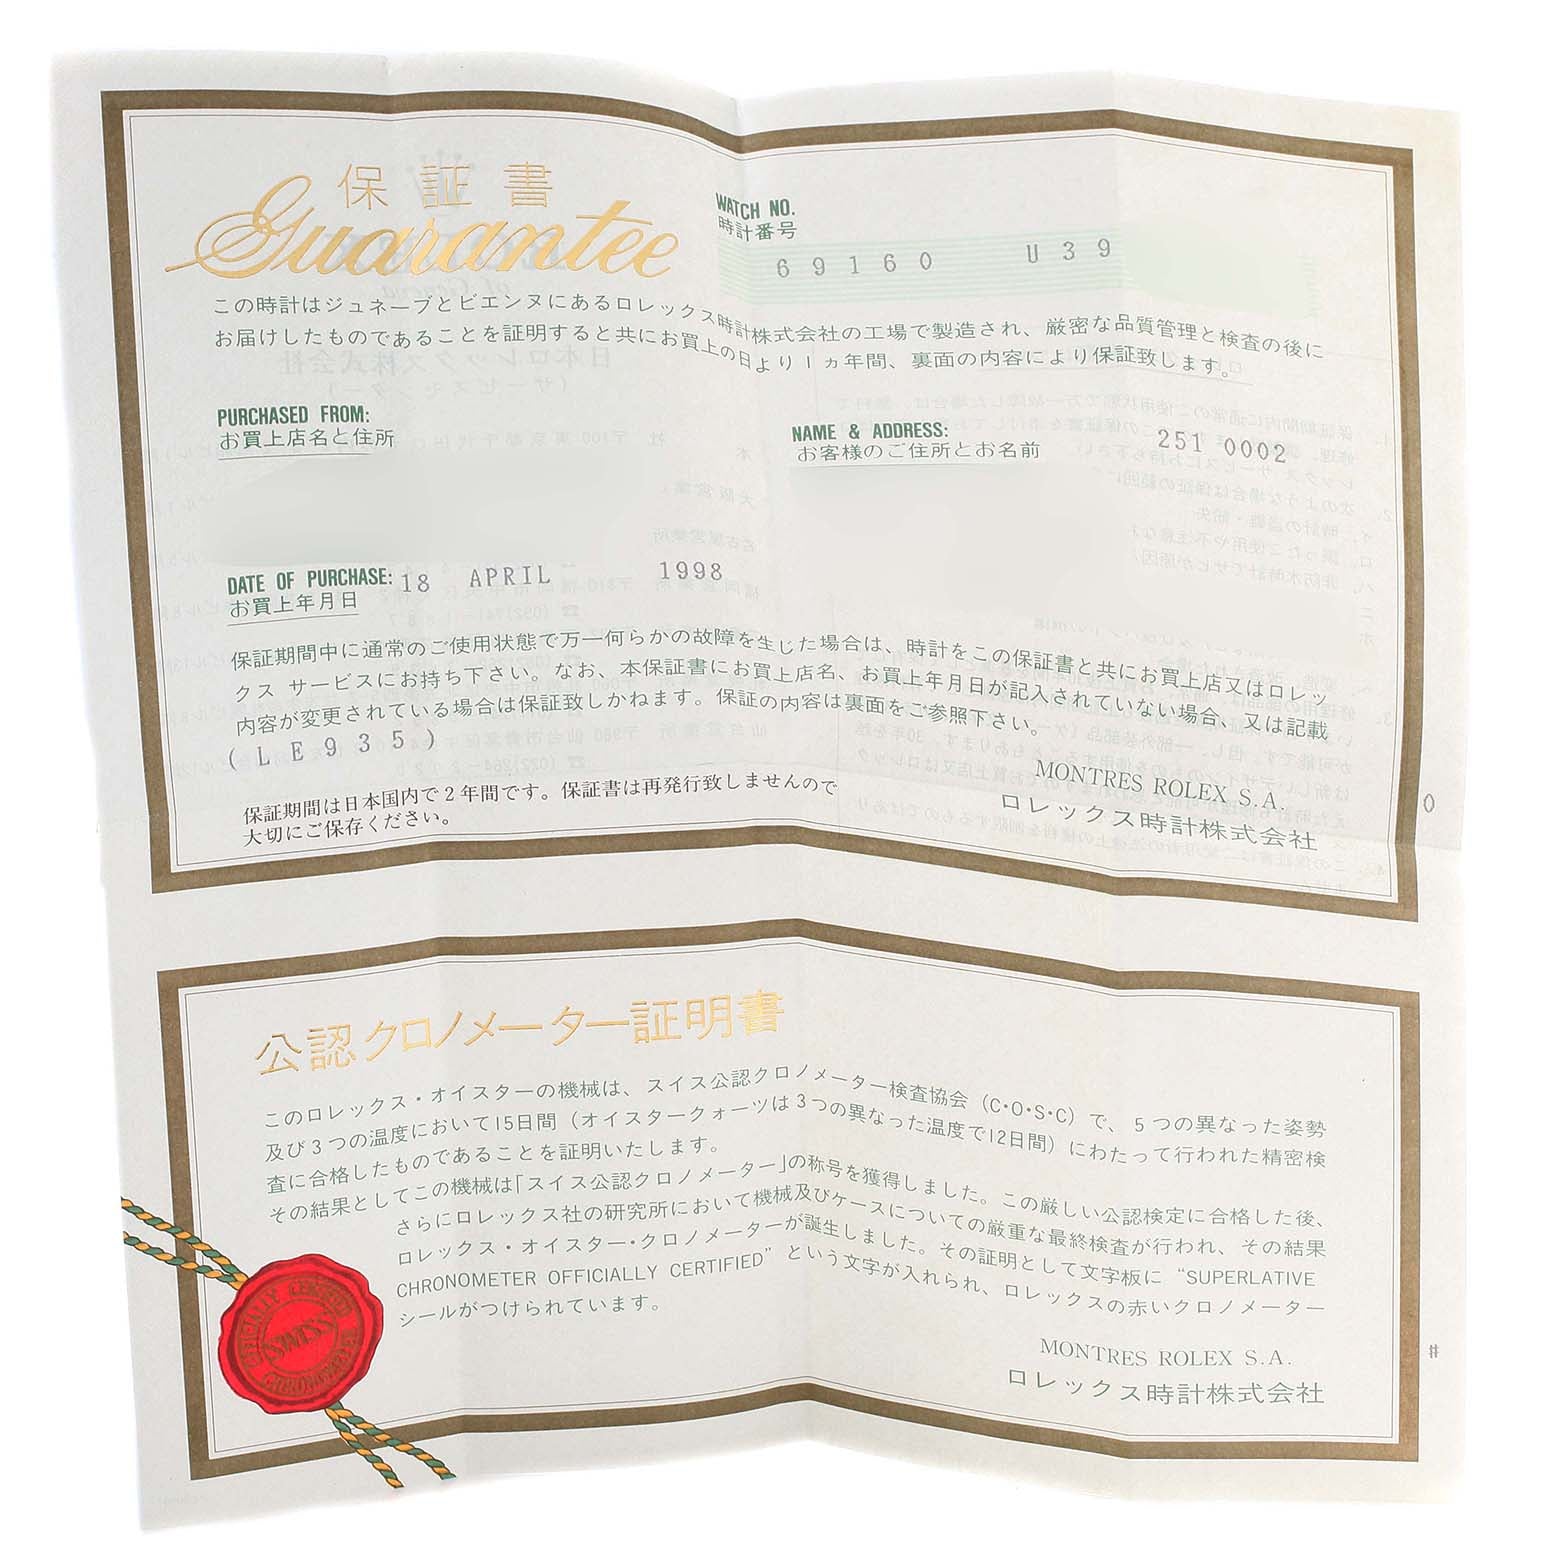 保証書
Guarantee
WATCH NO.
時計番号
69160 U39
この時計はジュネーブとビエンヌにあるロレックス時計株式会社の工場で製造され、厳密な品質管理と検査の後に
お届けしたものであることを証明すると共にお買上の日より1ヵ年間、裏面の内容により保証致します。
PURCHASED FROM:
お買上店名と住所
NAME & ADDRESS:
お客様のご住所とお名前
251 0002
DATE OF PURCHASE: 18 APRIL 1998
お買上年月日
保証期間中に通常のご使用状態で万一何らかの故障を生じた場合は、時計をこの保証書と共にお買上店又はロレッ
クス サービスにお持ち下さい。なお、本保証書にお買上店名、お買上年月日が記入されていない場合、又は記載
内容が変更されている場合は保証致しかねます。保証の内容は裏面をご参照下さい。
(LE935)
保証期間は日本国内で2年間です。保証書は再発行致しませんので
大切にご保存ください。
MONTRES ROLEX S.A.
ロレックス時計株式会社
0
公認クロノメーター証明書
このロレックス・オイスターの機械は、スイス公認クロノメーター検査協会 (C・O・S・C) で、5つの異なった姿勢
及び3つの温度において15日間 (オイスタークォーツは3つの異なった温度で12日間) にわたって行われた精密検
査に合格したものであることを証明いたします。
その結果としてこの機械は「スイス公認クロノメーター」の称号を獲得しました。この厳しい公認検定に合格した後、
さらにロレックス社の研究所において機械及びケースについての厳重な最終検査が行われ、その結果
ロレックス・オイスター・クロノメーターが誕生しました。その証明として文字板に “SUPERLATIVE
CHRONOMETER OFFICIALLY CERTIFIED” という文字が入れられ、ロレックスの赤いクロノメーター
シールがつけられています。
OFFICIALLY CERTIFIED
SWISS
CHRONOMETER
MONTRES ROLEX S.A.
ロレックス時計株式会社
#